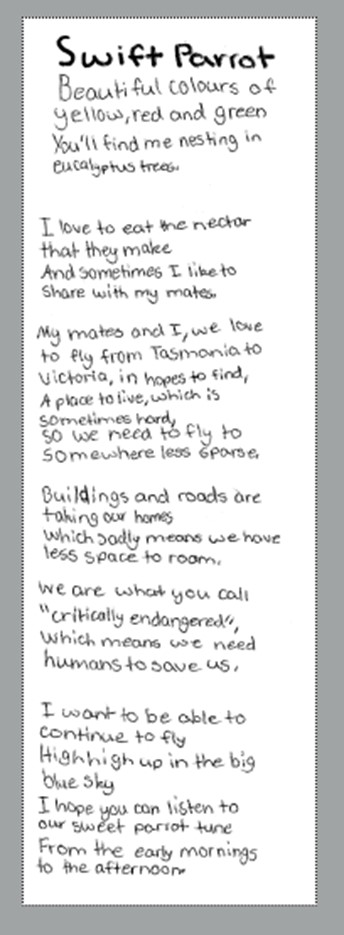 Swift Parrot
Beautiful colours of
yellow, red and green
You'll find me nesting in
eucalyptus trees.
I love to eat the nectar
that they make
And sometimes I like to
share with my mates.
My mates and I, we love
to fly from Tasmania to
Victoria, in hopes to find,
A place to live, which is
sometimes hard,
so we need to fly to
somewhere less sparse.
Buildings and roads are
taking our homes
which sadly means we have
less space to roam.
We are what you call
"critically endangered",
which means we need
humans to save us.
I want to be able to
continue to fly
High high up in the big
blue sky
I hope you can listen to
our sweet parrot tune
From the early mornings
to the afternoon